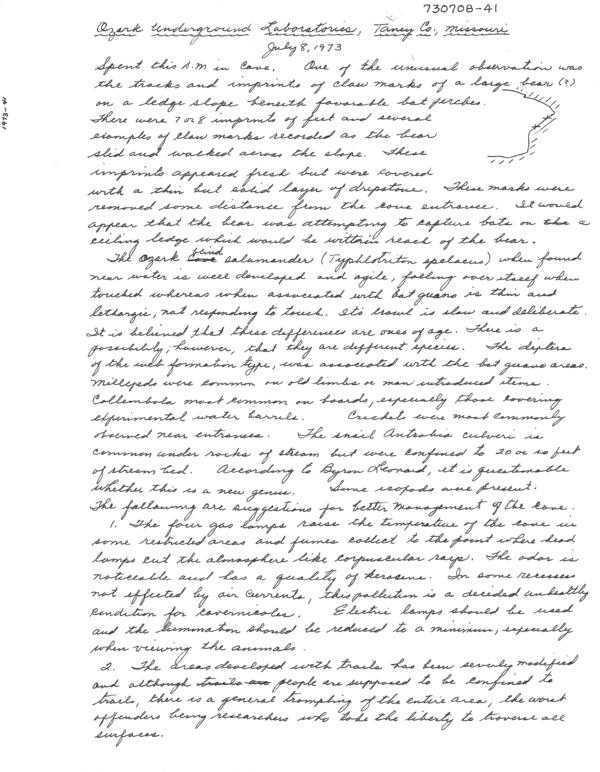 730708-41
Ozark Underground Laboratories, Taney Co., Missouri
July 8, 1973
1973-41
Spent this A.M in Cave. One of the unusual observation was
the tracks and imprints of claw marks of a large bear (?)
on a ledge slope beneith favorable bat perches.
There were 7 or 8 imprints of feet and several
examples of claw marks recorded as the bear
slid and walked across the slope. These
imprints appeared fresh but were covered
with a thin but solid layer of dripstone. These marks were
removed some distance from the cave entrance. It would
appear that the bear was attempting to capture bats on the a
ceiling ledge which would be within reach of the bear.
The Ozark blind salamander (Typhlotriton spelaeus) when found
near water is well developed and agile, falling over itself when
touched whereas when associated with bat guano is thin and
lethargic, not responding to touch. It's crawl is slow and deliberate.
It is believed that these defferences are ones of age. There is a
possibility, however, that they are different species. The diptera
of the web formation type, was associated with the bat guano areas.
Millipeds were common on old limbs or man introduced items.
Collembola most common on boards, especially those covering
experimental water barrels. Cricket were most commonly
observed near entrances. The snail Antrobia culveri is
common under rocks of stream but were confined to 20 or so feet
of stream bed. According to Byron Leonard, it is questionable
whether this is a new genus. Some isopods were present.
The following are suggestions for better management of the cave.
1. The four gas lamps raise the temperature of the cave in
some restricted areas and fumes collect to the point where head
lamps cut the atmosphere like corpuscular rays. The odor is
noticeable and has a quality of kerosene. In some recesses
not effected by air currents, this pollution is a decided unhealthy
condition for cavernicoles. Electric lamps should be used
and the illumination should be reduced to a minimum, especially
when viewing the animals.
2. The areas developed with trails has been severly modified
and although trails are people are supposed to be confined to
trails, there is a general trampling of the entire area, the worst
offenders being researchers who take the liberty to traverse all
surfaces.